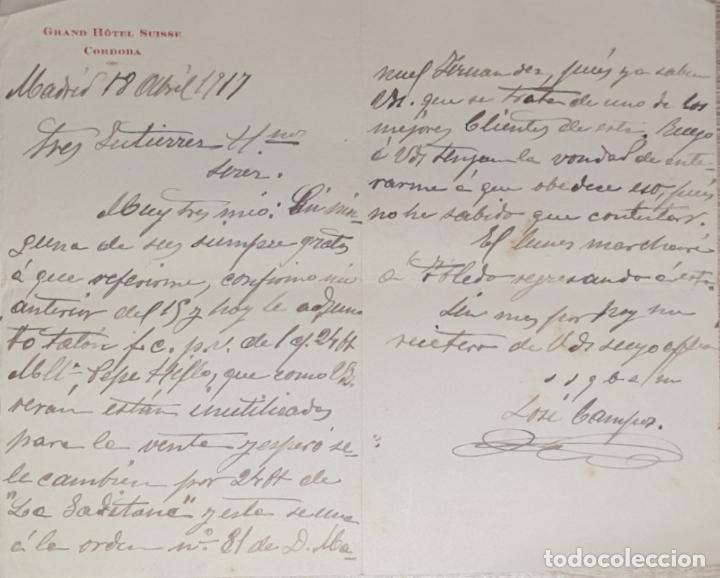 GRAND HÔTEL SUISSE
CORDOBA
Madrid 18 Abril 1917
Sres Gutierrez Hnos
Jerez.
Muy Sres mios: Sin nin-
guna de sus siempre gratas
á que referirme, confirmo mi
anterior del 15 y hoy le adjun
to talon f.c. p.v. de 1 c/ 24 bt
Mlla. Pepe Hillo, que como Vds.
veran estan inutilizados
para la venta y espero se
le cambien por 24 bt de
"La Gaditana" y esta se una
á la orden nº. 81 de D. Ma
nuel Fernandez, pues ya saben
Vds. que se trata de uno de los
mejores Clientes de esta. Ruego
á Vds tengan la vondad de ente-
rarme á que obedece eso, pues
no he sabido que contestar.
El lunes marcharé
a Toledo regresando á esta.
Sin mas por hoy me
reitero de Vds suyo affmo
s s q b s m
José Campos.
todocoleccion.net